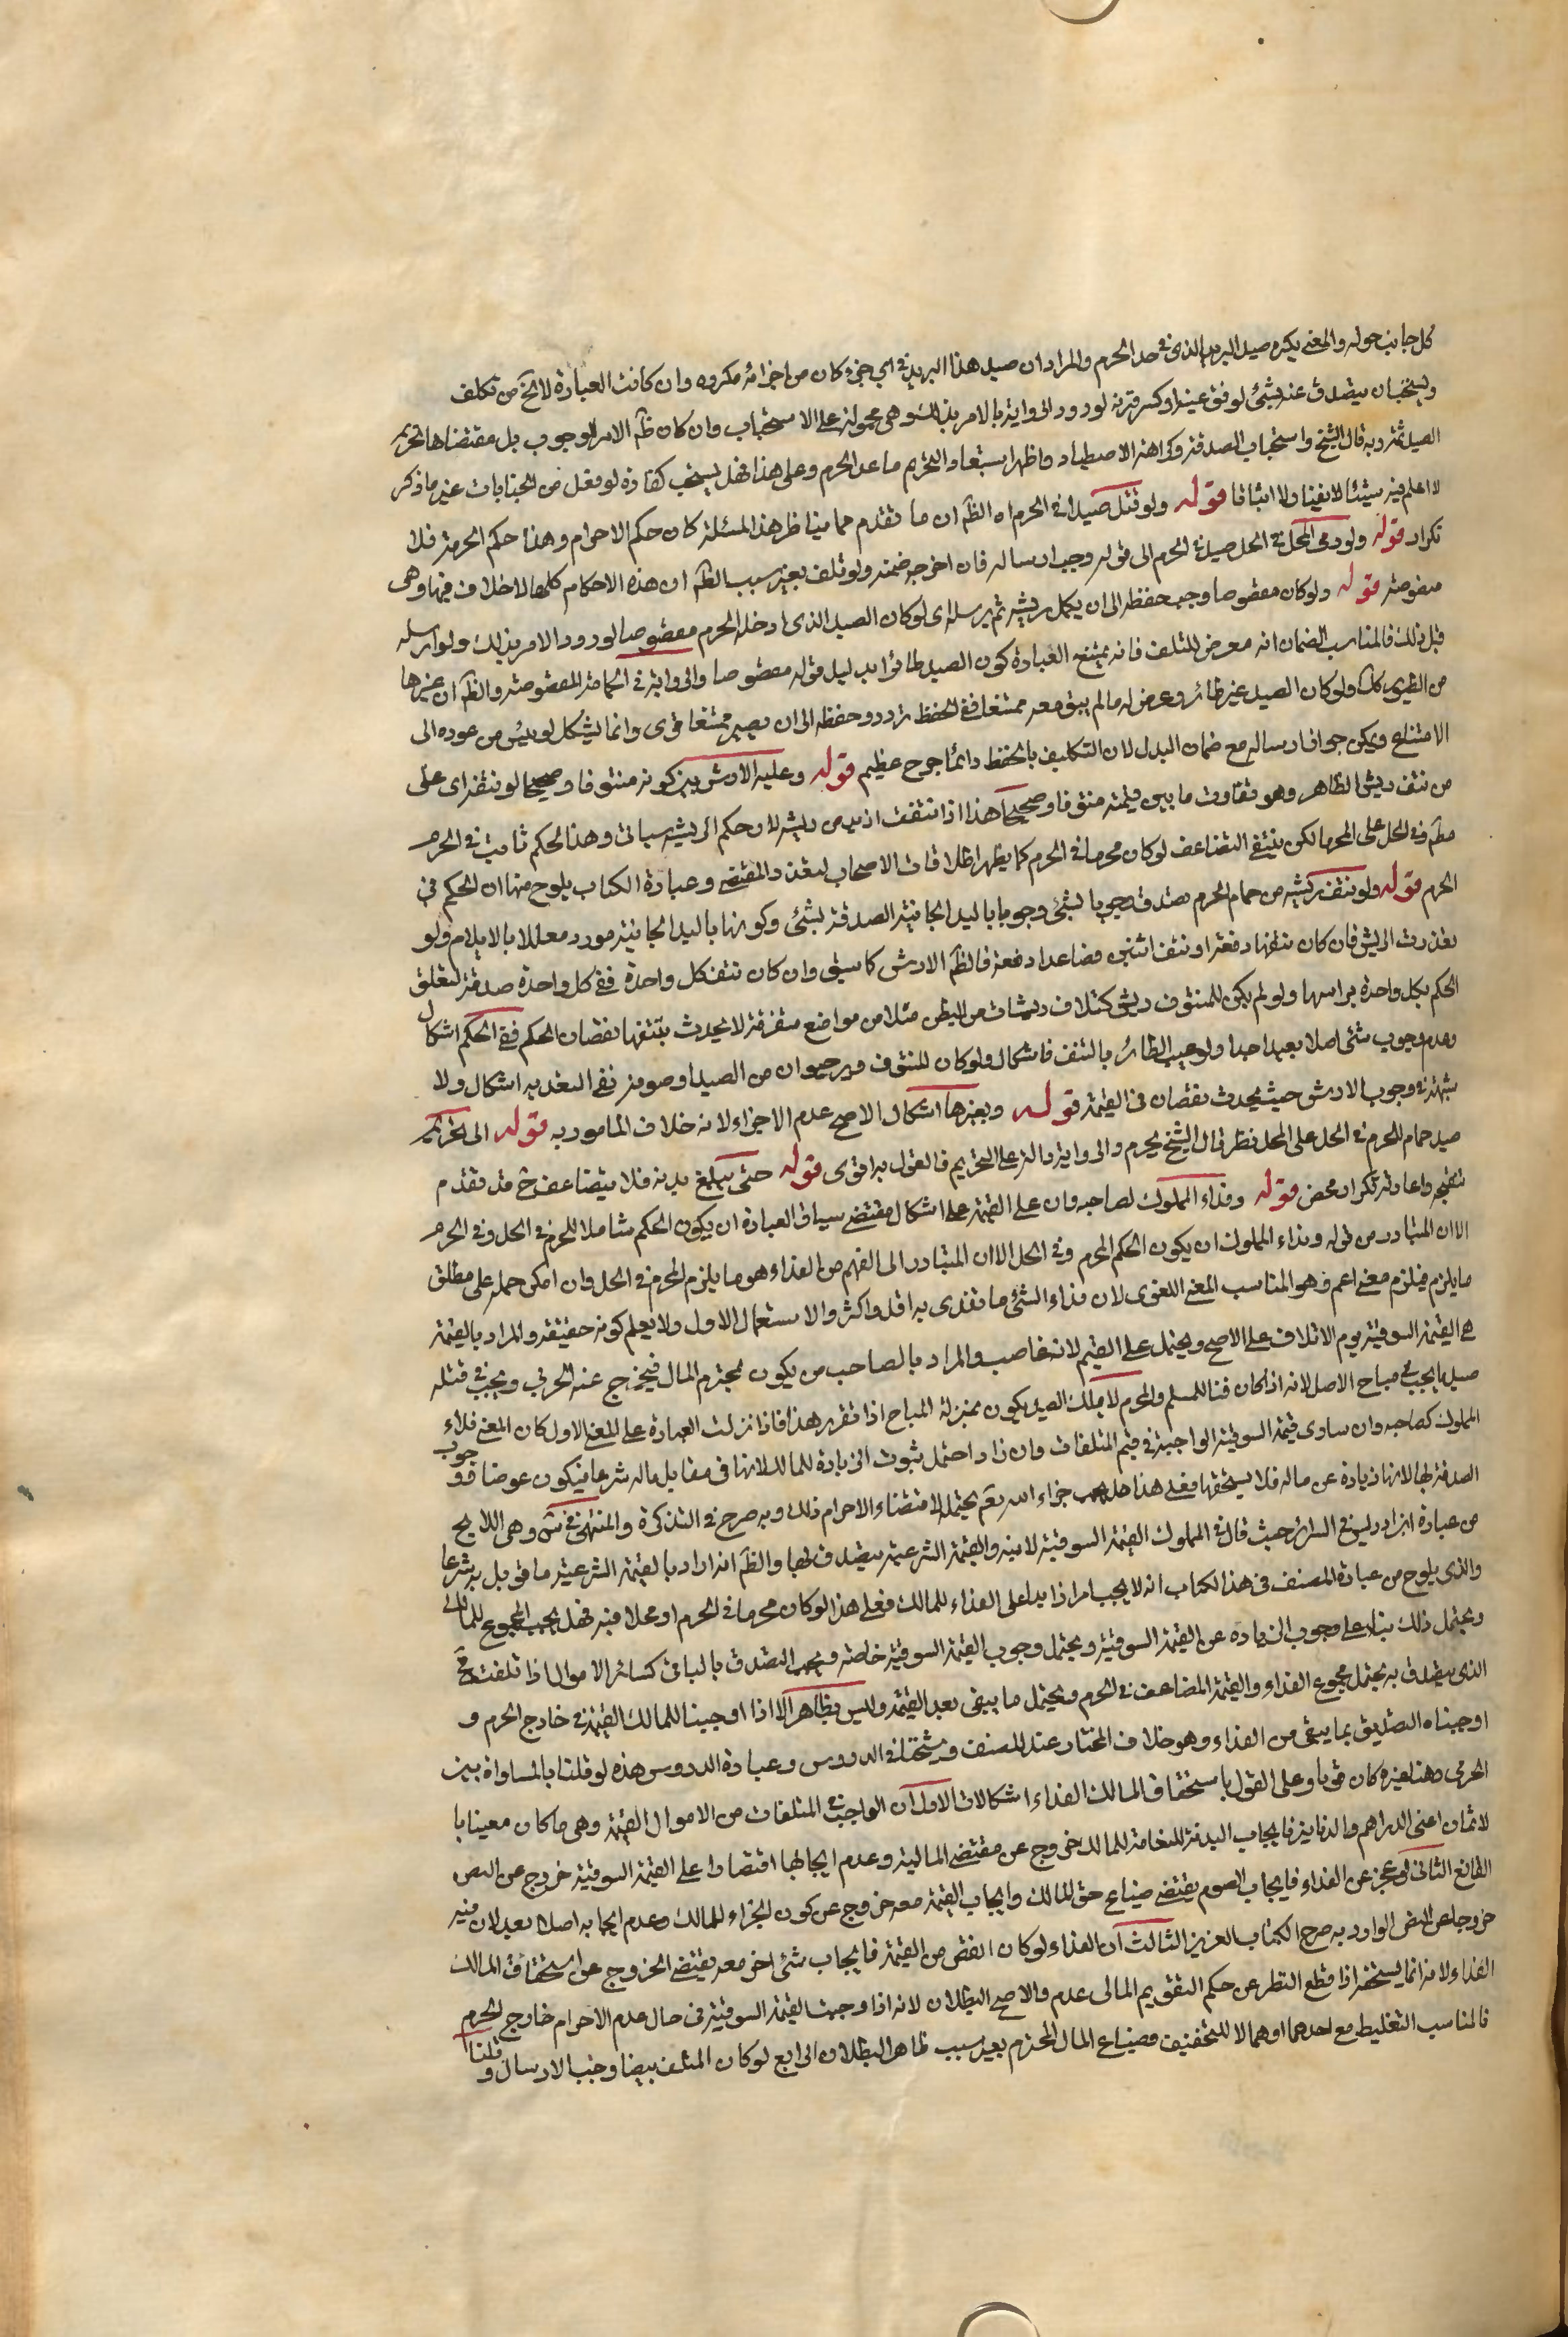 كل جانب حوله والمعنى يكره صيد البريد الذي في حد الحرم والمراد ان صيد هذا البريد في اي جزء كان من اجزائه مكروه وان كانت العبارة لا تخ من تكلف
ويستحب ان يتصدق عنه بشئ لو فقئ عينه او كسر قرنه لورود الرواية بالامر بذلك وهي محمولة على الاستحباب وان كان ظم الامر الوجوب بل مقتضاها تحريم
الصيد ثمة وبه قال الشيخ واستحباب الصدقة وكراهة الاصطياد واظهر استبعاد التحريم ما عدا الحرم وعلى هذا فهل يستحب كفارة لو فعل من الجنايات غير ما ذكر
لا اعلم فيه شيئا لا نفيا ولا اثباتا قوله ولو قتل صيدا في الحرم اه الظم ان ما تقدم مما يناظر هذا المسئلة كان حكم الاحرام وهذا حكم الحرمة فلا
تكرار قوله ولو رمى المحل في الحل صيدا في الحرم الى قوله وجب ارساله فان اخرجه ضمنه ولو تلف بغير سبب الظم ان هذه الاحكام كلها لا خلاف فيها وهي
منصوصة قوله ولو كان مقصوصا وجب حفظه الى ان يكمل ريشه ثم يرسله اي لو كان الصيد الذي ادخله الحرم مقصوصا لورود الامر بذلك ولو ارسله
قبل ذلك فالمناسب الضمان انه معرض للتلف فانه يمتنع العبارة كون الصيد طائرا بدليل قوله مقصوصا والرواية في الحمامة المقصوصة والظم ان غيرها
من الطيور كك ولو كان الصيد غير طائر وعرض له ما لم يبق معه ممتنعا ففي الحفظ تردد وحفظه الى ان يصير ممتنعا قوي وانما يشكل لو يئس من عوده الى
الامتناع ويمكن جواز ارساله مع ضمان البدل لان التكليف بالحفظ دائما حرج عظيم قوله وعليه الارش بين كونه منتوفا وصحيحا لو نتفه اي على
من نتف ريش الظاهر وهو تفاوت ما بين قيمته منتوفا وصحيحا هذا اذا نتفت ازيد من ريشه لان حكم الريشه سياتي وهذا الحكم ثابت في الحرم
مطم وفي الحل على المحرم لكن ينتفي التضاعف لو كان محرما في الحرم كما يظهر اطلاقات الاصحاب لتعدد المقتضى وعبارة الكتاب يلوح منها ان الحكم في
الحرم قوله ولو نتف ريشه من حمام الحرم تصدق وجوبا بشئ وجوبا باليد الجانية الصدقة بشئ وكونها باليد الجانية مورد معللا بالايلام ولو
تعددت الريش فان كان نتفها دفعة او نتف اثنين فصاعدا دفعة فالظم الارش كما سبق وان كان نتف كل واحدة ففي كل واحدة صدقة لتعلق
الحكم بكل واحدة براسها ولو لم يكن للمنتوف ريش كتلاف ريشات من البطن مثلا من مواضع متفرقة لا يحدث بنتفها نقصان الحكم ففي الحكم اشكال
وعدم وجوب شئ اصلا بعيد جدا ولو عيب الطائر بالنتف فاشكال ولو كان المنتوف وبر حيوان من الصيد او صوفه ففي التعديه اشكال ولا
شبهة في وجوب الارش حيث يحدث نقصان في القيمة قوله وبغيرها اشكال الاصح عدم الاجزاء لانه خلاف المامور به قوله الى تحريم
صيد حمام الحرم في الحل على المحل نظر قال الشيخ يحرم والرواية دالة على التحريم فالقول به اقوى قوله حتى يبلغ بدنة فلا يتضاعف ح قد تقدم
تنقيحه واعادته تكرار محض قوله وفداء المملوك لصاحبه وان على القيمة على اشكال مقتضى سياق العبارة ان يكون الحكم شاملا للحرم في الحل وفي الحرم
الا ان المتبادر من قوله وفداء المملوك ان يكون الحكم المحرم وفي الحل الا ان المتبادر الى الفهم من الفداء هو ما يلزم المحرم في الحل وان امكن حمله على مطلق
ما يلزم فيلزم معنى اعم وهو المناسب المعنى اللغوي لان فداء الشئ ما تفدى به اقل واكثر والاستعمال الاول ولا يعلم كونه حقيقة والمراد بالقيمة
هي القيمة السوقية يوم الاتلاف على الاصح ويحتمل على القيم لانه غاصب والمراد بالصاحب من يكون محترم المال فيخرج عنه الحربي ويجب في قتله
صيد ما يجب في مباح الاصل لانه اذا كان فنا للمسلم والمحرم لا يملك الصيد يكون بمنزلة المباح اذا تقرر هذا فاذا نزلت العبارة على المعنى الاول كان المعنى فداء
المملوك لصاحبه وان ساوى قيمة السوقية الواجبة في قيم المتلفات وان زاد احتمل ثبوت الزيادة للمالك لانها في مقابل ماله شرعا فيكون عوضا فوجوب
الصدقة بها لانها زيادة عن ماله فلا يستحقها فعلى هذا هل يجب جزاء الله يعم يحتمل لاقتضاء الاحرام ذلك وبه صرح في التذكرة والمنتهى في شئ وهي اللايح
من عبارة ابن ادريس في السرائر حيث قال في المملوك القيمة السوقية لامينه والقيمة الشرعية يتصدق بها والظم انه اراد بالقيمة الشرعية ما قوبل به شرعا
والذي يلوح من عبارة المصنف في هذا الكتاب انه لا يجب امر ازايدا على الفداء للمالك فعلى هذا لو كان محرما في الحرم او محلا فيه فهل يجب المجموع للمالك
ويحتمل ذلك بناء على وجوب الزيادة عن القيمة السوقية ويحتمل وجوب القيمة السوقية خاصة ويجب التصدق بالباقي كسائر الاموال اذا تلفت فح
الذي يتصدق به يحتمل مجموع الفداء والقيمة المضاعف في الحرم ويحتمل ما يبقى بعد القيمة وليس بظاهر الا اذا اوجبنا للمالك القيمة في خارج الحرم و
اوجبناه التصديق بما يبقى من الفداء وهو خلاف المختار عند المصنف وشيخنا في الدروس وعبارة الدروس هذه لو قلنا بالمساواة بين
الحرمي وهنا لغيره كان قويا وعلى القول باستحقاق المالك الفداء اشكالات الاول ان الواجب في المتلفات من الاموال القيمة وهي ما كان معينا با
لاثمان اعني الدراهم والدنانير فايجاب البدنة للنعامة للمالك خروج عن مقتضى المالية وعدم ايجابها اقتصارا على القيمة السوقية خروج عن النص
القاطع الثاني لو عجز عن الفداء فايجاب الصوم يقتضي ضياع حق المالك وايجاب القيمة معه خروج عن كون الجزاء للمالك وعدم ايجابه اصلا بعيد لان فيه
خروجا عن النص الوارد به صرح الكتاب العزيز الثالث ان الفداء لو كان انقص من القيمة فايجاب شئ اخر معه يقتضى الخروج عن استحقاق المالك
الفداء لانه انما يستحقه اذا قطع النظر عن حكم التقويم المالى عدم والاصح البطلان لانه اذا وجبت القيمة السوقية في حال عدم الاحرام خارج الحرم
فالمناسب التغليط مع احدهما او هما لا للتخفيف وضياع المال المحترم بغير سبب ظاهر البطلان الرابع لو كان المتلف بيضا وجب الارسال وقلنا